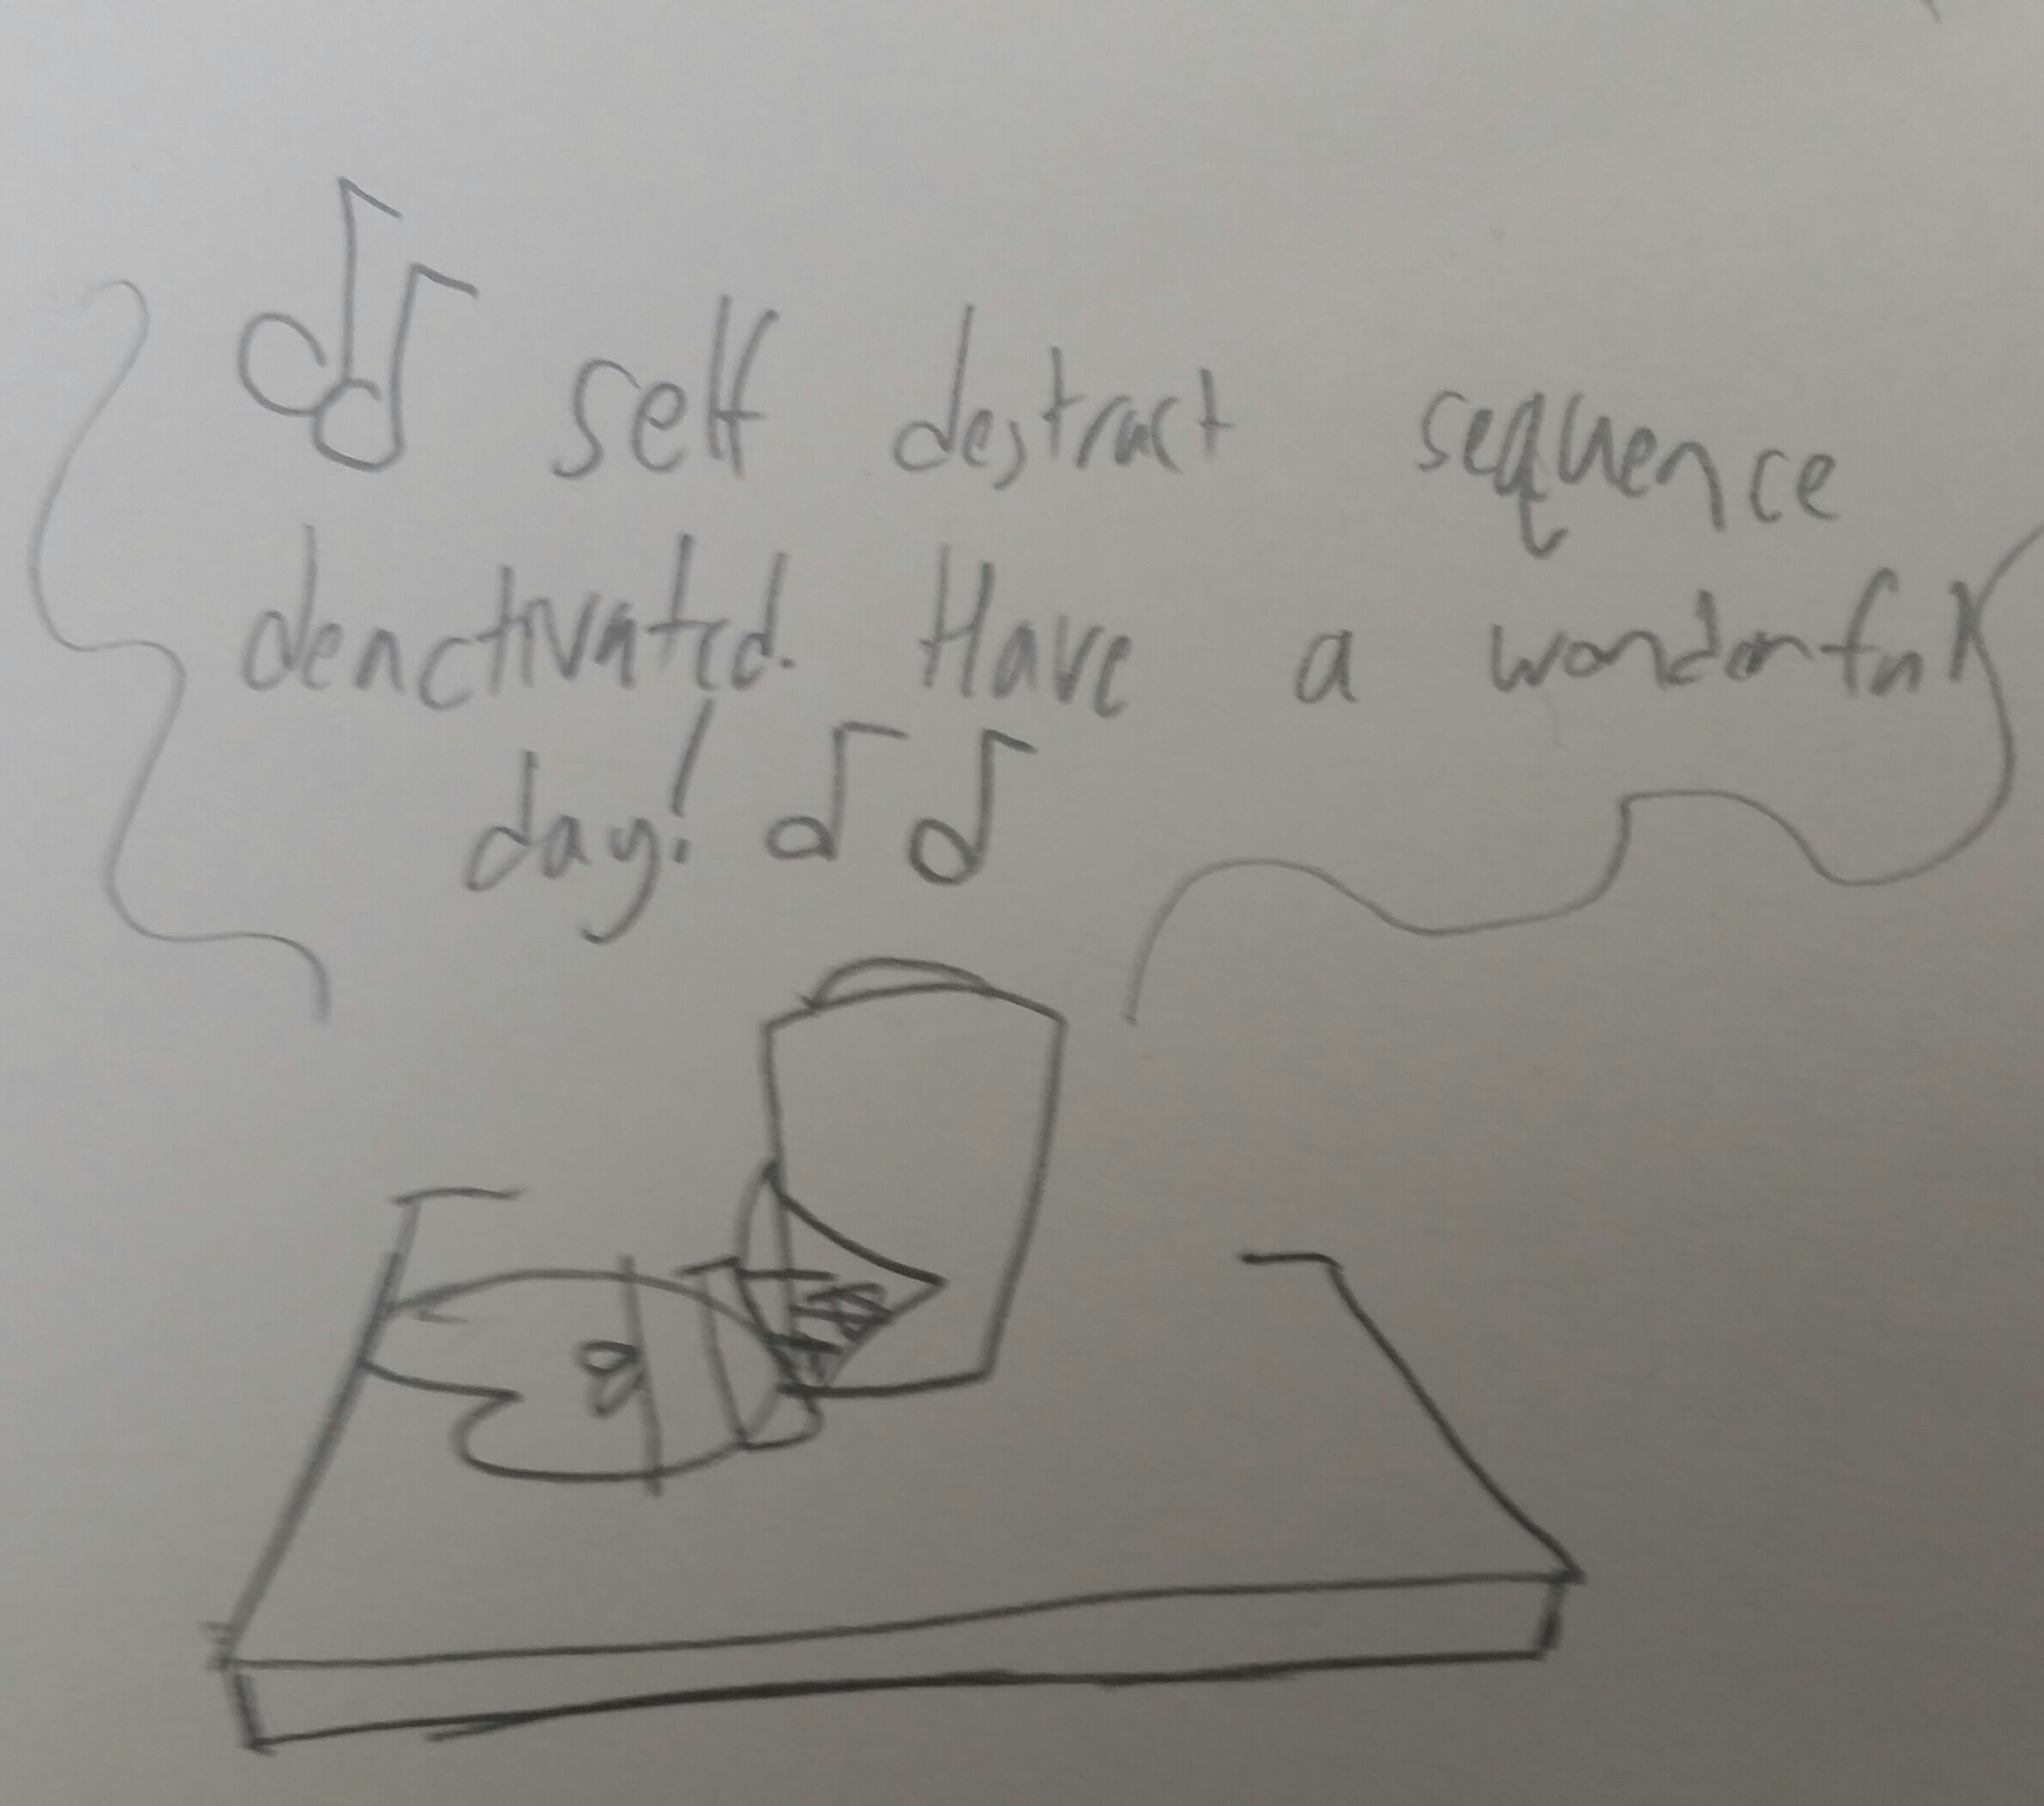 ♫ self destruct sequence
deactivated. Have a wonderful
day! ♪♪